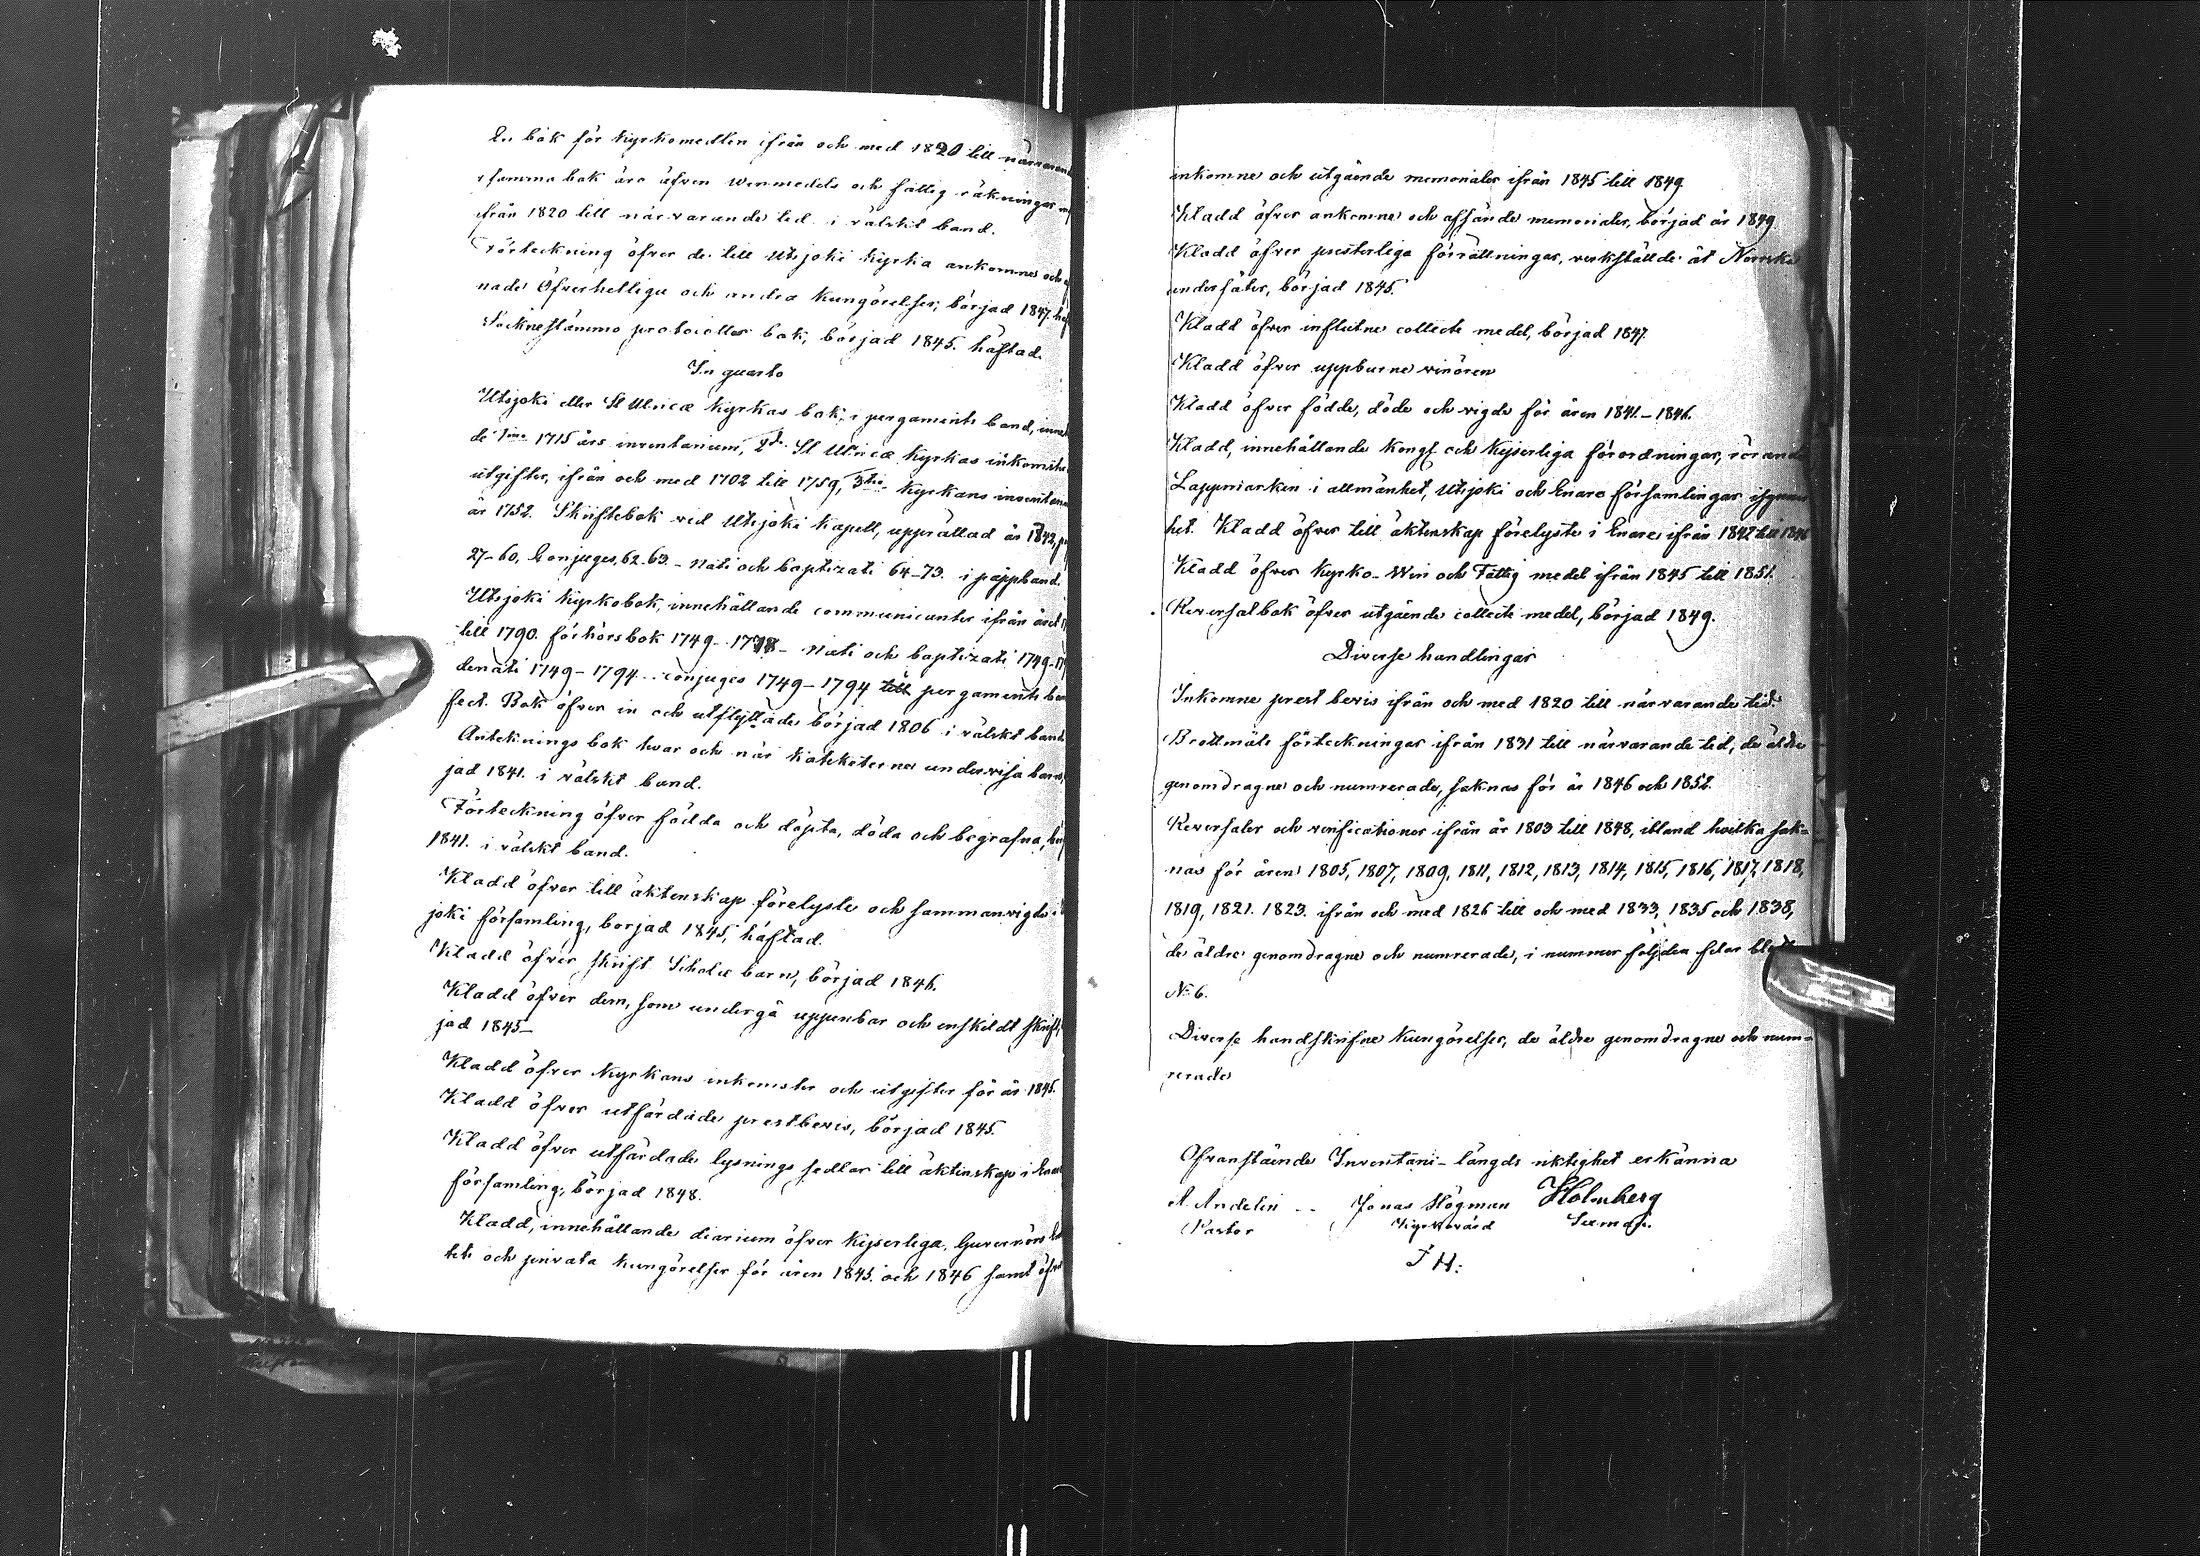 En bok för Kyrkomedlen ifrån och med 1820 till närvarande
samma bok äro äfven Winmedels och fattig räkningar
ifrån 1820 till närvarande tid i välskt band.
Förteckning öfver de till Utsjoki Kyrka ankomne och
nade Öfverhetliga och andra Kungörelser, börjad 1847.
Socknestämmo protocolls bok, börjad 1845. häftad.
In quarto
Utsjoki eller St Ulricæ Kyrkas bok, i pergaments band,
de 1mo 1715 års inventarium, 2do St Ulricæ Kyrkas inkomster
utgifter, ifrån och med 1702 till 1759, 3tio Kyrkans
år 1752. Skriftebok vid Utsjoki Kapell, upprättad år 1842,
27-60, Conjuges, 62-63. - Nati och baptizati 64-73. i pappband.
Utsjoki Kyrkobok, innehållande communicanter ifrån året
till 1790. förhörsbok 1749- - Nati och baptizati 1749-
denati 1749-1794 - conjuges 1749-1794 till pergaments
fect. Bok öfver in och utflyttade börjad 1806 i välskt band
Antecknings bok hvar och när Katheketerne undervisa barn,
jad 1841. i välskt band.
Förteckning öfver födda och döpta, döda och begrafna,
1841. i välskt band.
Kladd öfver till äktenskap förelyste och sammanvigde
joki församling, börjad 1845, häftad.
Kladd öfver skrift Schole barn, börjad 1846.
Kladd öfver dem, som undergå uppenbar och enskildt skrift,
jad 1845-
Kladd öfver Kyrkans inkomster och utgifter för år 1845.
Kladd öfver utfärdade prestbevis, börjad 1845.
Kladd öfver utfärdade lysnings sedlar till äktenskap i
församling, börjad 1848.
Kladd, innehållande diarium öfver Kejserliga, Guvernörs
tets och privata kungörelser för åren 1845. och 1846 samt
inkomne och utgående memorialer ifrån 1845 till 1849
Kladd öfver ankomne och afsände memorialer, börjad år 1849.
Kladd öfver presterliga förrättningar, verkställde åt Norrska
undersåter, börjad 1845.
Kladd öfver influtne collecte medel, börjad 1847.
Kladd öfver uppburne vinören
Kladd öfver födde, döde och vigde för åren 1841-1846.
Kladd, innehållande Kongl. och Kejserliga förordningar, rörande
Lappmarken i allmänhet, Utsjoki och Enare församlingar
het. Kladd öfver till äktenskap förelyste i Enare ifrån 1842 till 1846
Kladd öfver Kyrko- Win och Fattig medel ifrån 1845 till 1851.
Reversalbok öfver utgående collecte medel, börjad 1849.
Diverse handlingar
Inkomne prest bevis ifrån och med 1820 till närvarande tid.
Brottmåls förteckningar ifrån 1831 till närvarande tid, de äldre
genomdragne och numrerade, saknas för år 1846 och 1852.
Reversaler och verificationer ifrån år 1803 till 1848, ibland hvilka sak-
nas för åren 1805, 1807, 1809, 1811, 1812, 1813, 1814, 1815, 1816, 1817, 1818,
1819, 1821. 1823. ifrån och med 1826 till och med 1833, 1835 och 1838,
de äldre genomdragne och numrerade, i nummer följden felar
No 6.
Diverse handskrifne Kungörelser, de äldre genomdragne och num-
rerade
Ofvanstående Inventarii-längds riktighet erkänna
A. Andelin Jonas Högman Holmberg
Pastor Kyrkovärd
J H: